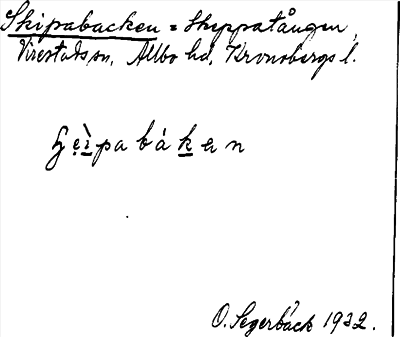 Skipabacken = Skeppatången,
Virestads sn, Allbo hd, Kronobergs l.
ɧẹì̱pabák̲an
O. Segerbäck 1932.